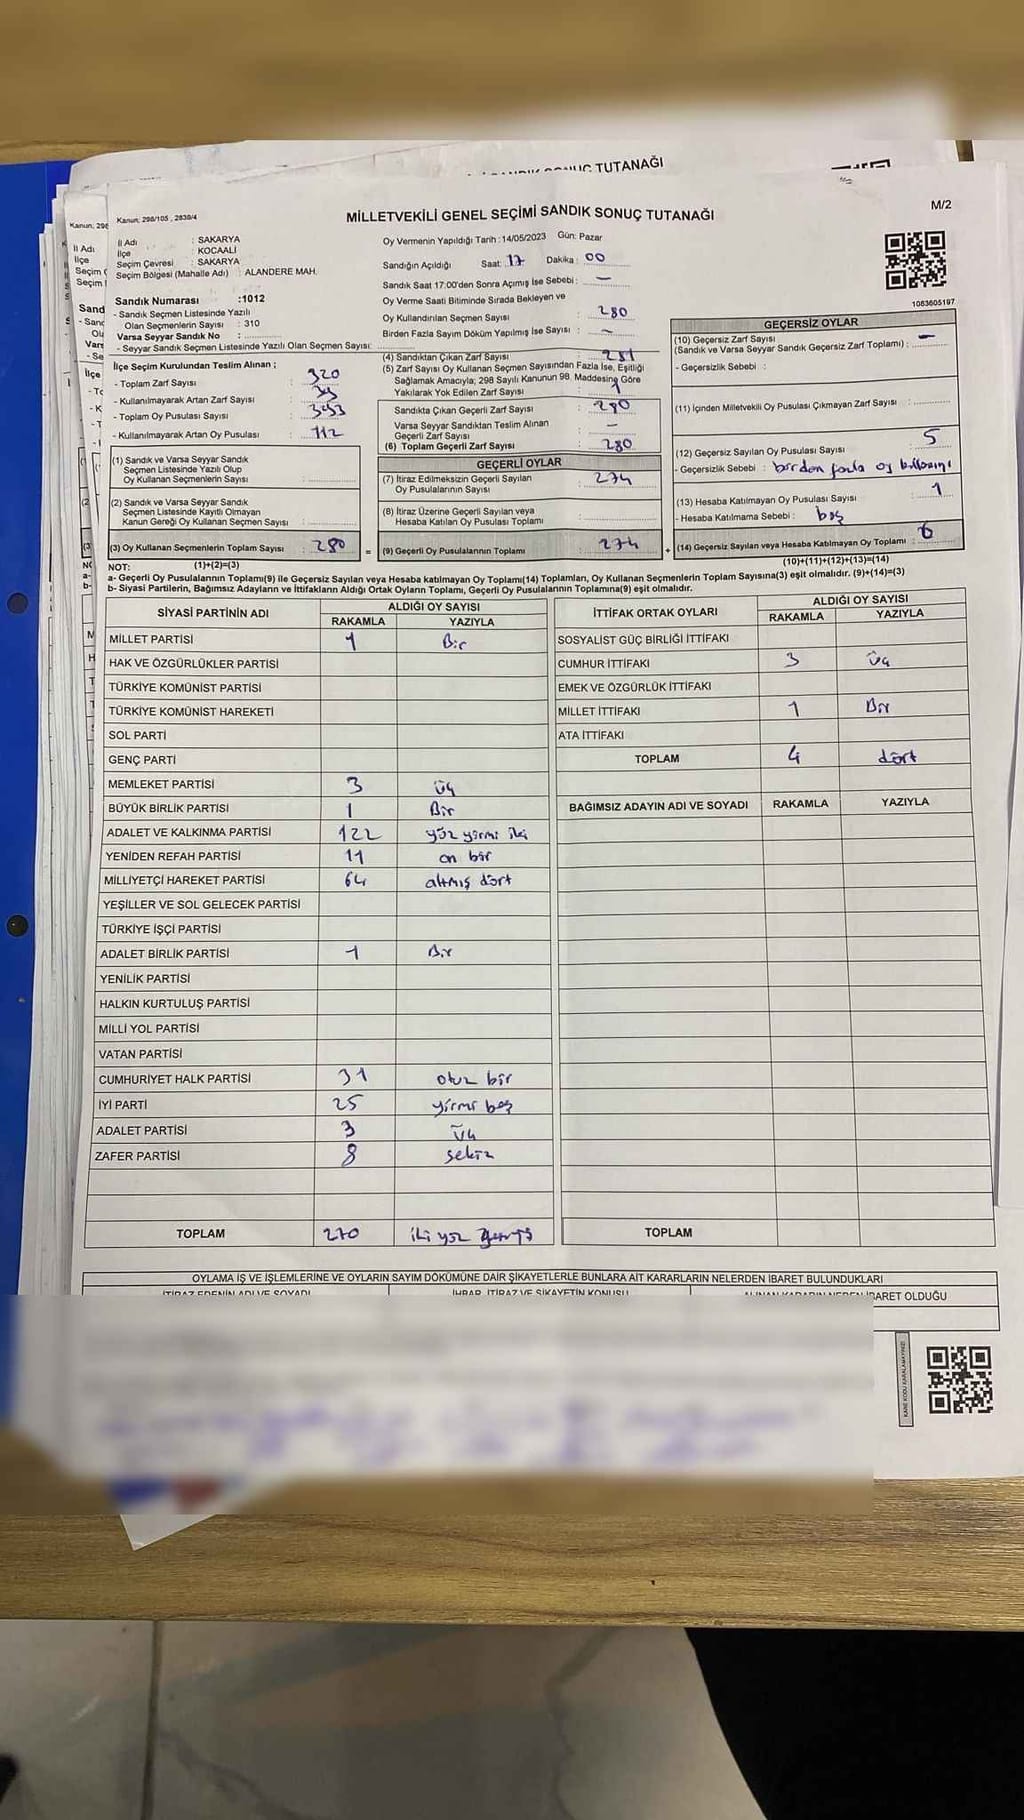 SANDIK SONUÇ TUTANAĞI
Kanun: 298/105 , 2839/4
MİLLETVEKİLİ GENEL SEÇİMİ SANDIK SONUÇ TUTANAĞI
M/2
İl Adı : SAKARYA
İlçe : KOCAALİ
Seçim Çevresi : SAKARYA
Seçim Bölgesi (Mahalle Adı) : ALANDERE MAH.
Sandık Numarası :1012
- Sandık Seçmen Listesinde Yazılı
Olan Seçmenlerin Sayısı : 310
Varsa Seyyar Sandık No :
- Seyyar Sandık Seçmen Listesinde Yazılı Olan Seçmen Sayısı:
İlçe Seçim Kurulundan Teslim Alınan ;
- Toplam Zarf Sayısı : 320
- Kullanılmayarak Artan Zarf Sayısı : 39
- Toplam Oy Pusulası Sayısı : 393
- Kullanılmayarak Artan Oy Pusulası : 112
(1) Sandık ve Varsa Seyyar Sandık
Seçmen Listesinde Yazılı Olup
Oy Kullanan Seçmenlerin Sayısı :
(2) Sandık ve Varsa Seyyar Sandık
Seçmen Listesinde Kayıtlı Olmayan
Kanun Gereği Oy Kullanan Seçmen Sayısı :
(3) Oy Kullanan Seçmenlerin Toplam Sayısı : 280
Oy Vermenin Yapıldığı Tarih :14/05/2023 Gün: Pazar
Sandığın Açıldığı Saat: 17 Dakika : 00
Sandık Saat 17:00'den Sonra Açılmış İse Sebebi : —
Oy Verme Saati Bitiminde Sırada Bekleyen ve
Oy Kullandırılan Seçmen Sayısı : 280
Birden Fazla Sayım Döküm Yapılmış İse Sayısı : —
(4) Sandıktan Çıkan Zarf Sayısı : 281
(5) Zarf Sayısı Oy Kullanan Seçmen Sayısından Fazla İse, Eşitliği
Sağlamak Amacıyla; 298 Sayılı Kanunun 98. Maddesine Göre
Yakılarak Yok Edilen Zarf Sayısı : 1
Sandıkta Çıkan Geçerli Zarf Sayısı : 280
Varsa Seyyar Sandıktan Teslim Alınan
Geçerli Zarf Sayısı : —
(6) Toplam Geçerli Zarf Sayısı : 280
GEÇERLİ OYLAR
(7) İtiraz Edilmeksizin Geçerli Sayılan
Oy Pusulalarının Sayısı : 274
(8) İtiraz Üzerine Geçerli Sayılan veya
Hesaba Katılan Oy Pusulası Toplamı :
= (9) Geçerli Oy Pusulalarının Toplamı : 274
1083605197
GEÇERSİZ OYLAR
(10) Geçersiz Zarf Sayısı
(Sandık ve Varsa Seyyar Sandık Geçersiz Zarf Toplamı) : —
- Geçersizlik Sebebi :
(11) İçinden Milletvekili Oy Pusulası Çıkmayan Zarf Sayısı :
(12) Geçersiz Sayılan Oy Pusulası Sayısı : 5
- Geçersizlik Sebebi : birden fazla oy
(13) Hesaba Katılmayan Oy Pusulası Sayısı : 1
- Hesaba Katılmama Sebebi : boş
+ (14) Geçersiz Sayılan veya Hesaba Katılmayan Oy Toplamı : 6
NOT: (1)+(2)=(3)
(10)+(11)+(12)+(13)=(14)
a- Geçerli Oy Pusulalarının Toplamı(9) ile Geçersiz Sayılan veya Hesaba katılmayan Oy Toplamı(14) Toplamları, Oy Kullanan Seçmenlerin Toplam Sayısına(3) eşit olmalıdır. (9)+(14)=(3)
b- Siyasi Partilerin, Bağımsız Adayların ve İttifakların Aldığı Ortak Oyların Toplamı, Geçerli Oy Pusulalarının Toplamına(9) eşit olmalıdır.
SİYASİ PARTİNİN ADI ALDIĞI OY SAYISI
RAKAMLA YAZIYLA
MİLLET PARTİSİ 1 Bir
HAK VE ÖZGÜRLÜKLER PARTİSİ
TÜRKİYE KOMÜNİST PARTİSİ
TÜRKİYE KOMÜNİST HAREKETİ
SOL PARTİ
GENÇ PARTİ
MEMLEKET PARTİSİ 3 üç
BÜYÜK BİRLİK PARTİSİ 1 Bir
ADALET VE KALKINMA PARTİSİ 122 yüz yirmi iki
YENİDEN REFAH PARTİSİ 11 on bir
MİLLİYETÇİ HAREKET PARTİSİ 64 altmış dört
YEŞİLLER VE SOL GELECEK PARTİSİ
TÜRKİYE İŞÇİ PARTİSİ
ADALET BİRLİK PARTİSİ 1 Bir
YENİLİK PARTİSİ
HALKIN KURTULUŞ PARTİSİ
MİLLİ YOL PARTİSİ
VATAN PARTİSİ
CUMHURİYET HALK PARTİSİ 31 otuz bir
İYİ PARTİ 25 yirmi beş
ADALET PARTİSİ 3 üç
ZAFER PARTİSİ 8 sekiz
TOPLAM 270 iki yüz yetmiş
İTTİFAK ORTAK OYLARI ALDIĞI OY SAYISI
RAKAMLA YAZIYLA
SOSYALİST GÜÇ BİRLİĞİ İTTİFAKI
CUMHUR İTTİFAKI 3 üç
EMEK VE ÖZGÜRLÜK İTTİFAKI
MİLLET İTTİFAKI 1 Bir
ATA İTTİFAKI
TOPLAM 4 dört
BAĞIMSIZ ADAYIN ADI VE SOYADI RAKAMLA YAZIYLA
TOPLAM
OYLAMA İŞ VE İŞLEMLERİNE VE OYLARIN SAYIM DÖKÜMÜNE DAİR ŞİKAYETLERLE BUNLARA AİT KARARLARIN NELERDEN İBARET BULUNDUKLARI
İTİRAZ EDENİN ADI VE SOYADI İHBAR, İTİRAZ VE ŞİKAYETİN KONUSU ALINAN KARARIN NEDEN İBARET OLDUĞU
KARE KODU KARALAMAYINIZ!